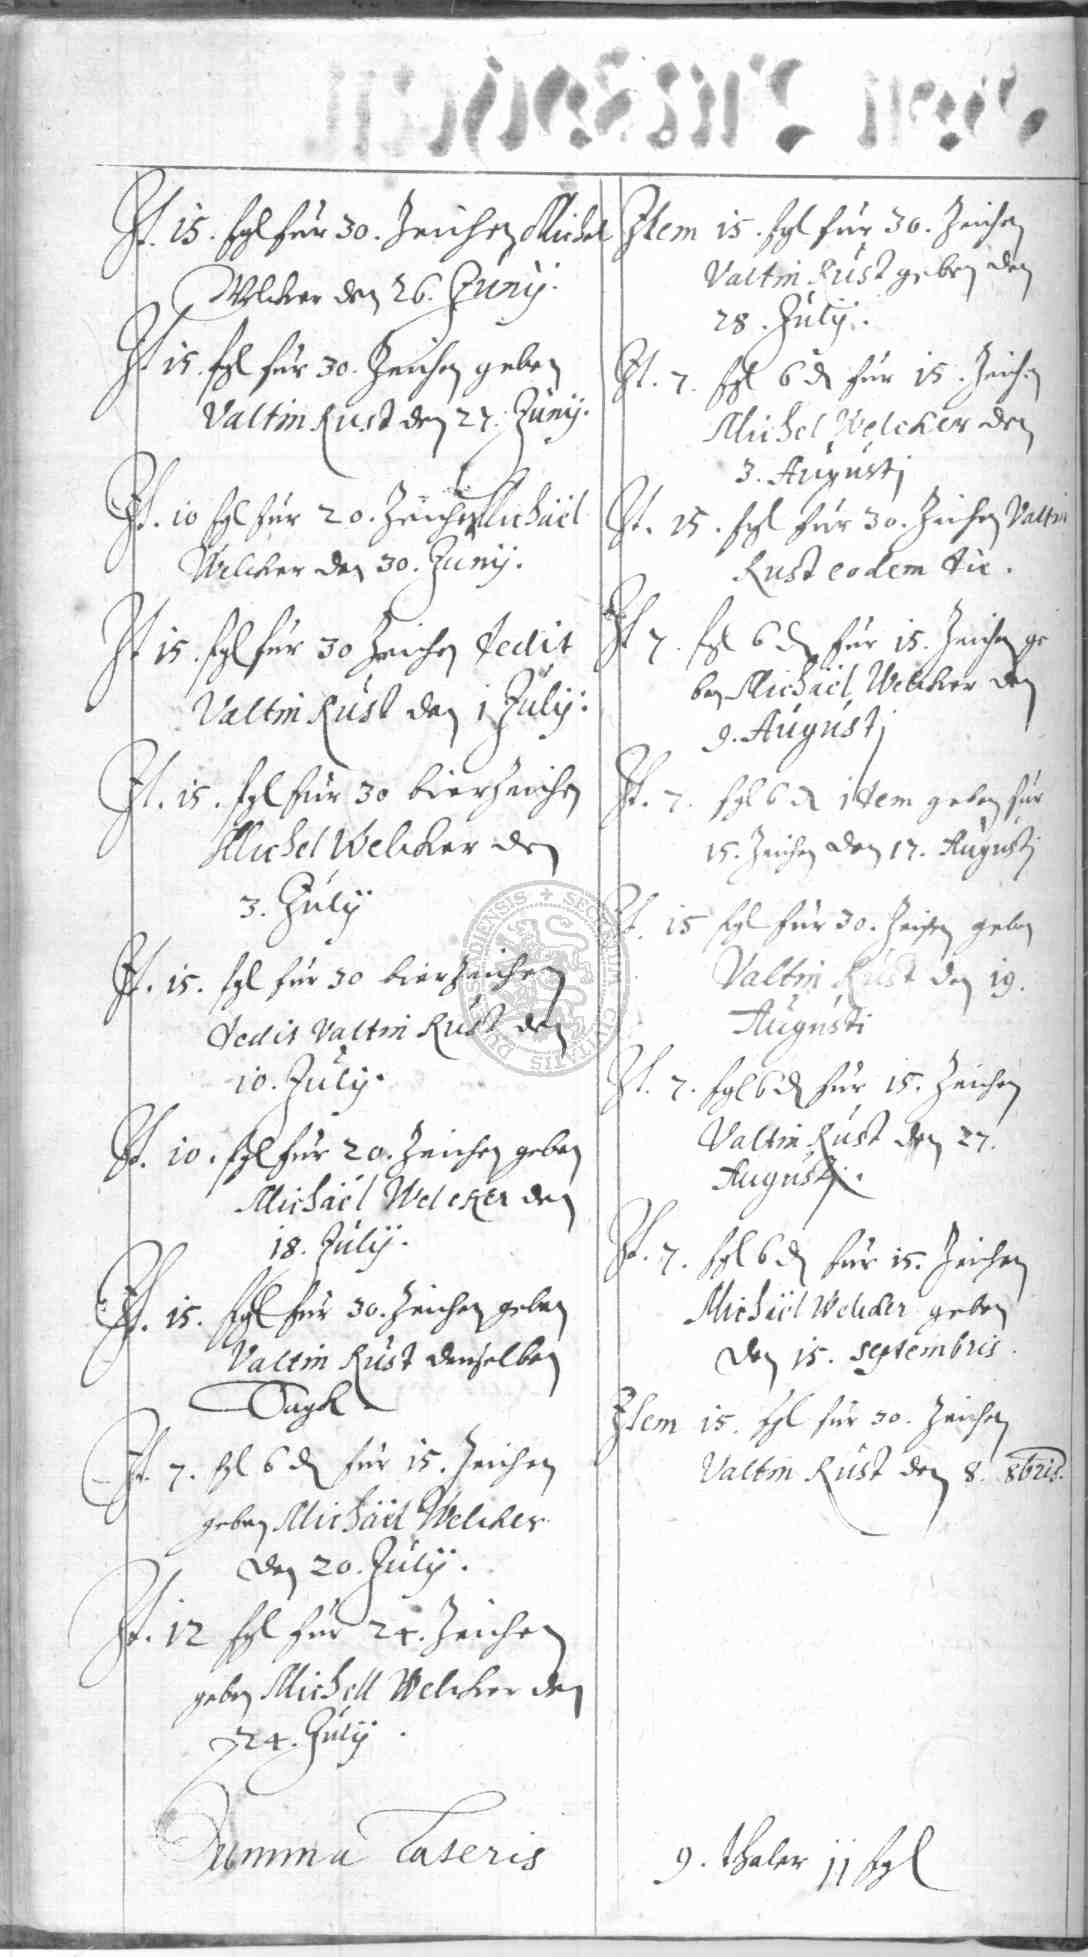 It. 15. sgl für 30. Zeichen Michel
Welcker den 26. Juny.
It 15. sgl für 30. Zeichen geben
Valtin Rust den 27. Juny.
It. 10 sgl für 20. Zeichen Michäel
Welcker den 30. Juny.
It 15. sgl für 30 Zeichen dedit
Valtin Rust den 1 July.
It. 15. sgl für 30 bierzeichen
Michel Welcker den
3. July
It. 15. sgl für 30 bierzeichen
dedit Valtin Rust den
10. July.
It. 10. sgl für 20. Zeichen geben
Michäel Welcker den
18. July.
It. 15. sgl für 30. Zeichen geben
Valtin Rust denselben
Tagk
It. 7. sgl 6 d für 15. Zeichen
geben Michäel Welcker
den 20. July.
It. 12 sgl für 24. Zeichen
geben Michell Welcker den
24. July.
Summa Lateris
Item 15. sgl für 30. Zeichen
Valtin Rust geben den
28. July.
It. 7. sgl 6 d für 15. Zeichen
Michel Welcker den
3. Augustj
It. 15. sgl für 30. Zeichen Valtin
Rust eodem die.
It 7. sgl 6 d für 15. Zeichen ge
ben Michäel Welcker den
9. Augustj
It. 7. sgl 6 d item geben für
15. Zeichen den 17. Augustj
It. 15 sgl für 30. Zeichen geben
Valtin Rust den 19.
Augusti
It. 7. sgl 6 d für 15. Zeichen
Valtin Rust den 27.
Augustj.
It. 7. sgl 6 d für 15. Zeichen
Michäel Welcker geben
den 15. Septembris.
Item 15. sgl für 30. Zeichen
Valtin Rust den 8. 8bris.
9. thaler 11 sgl